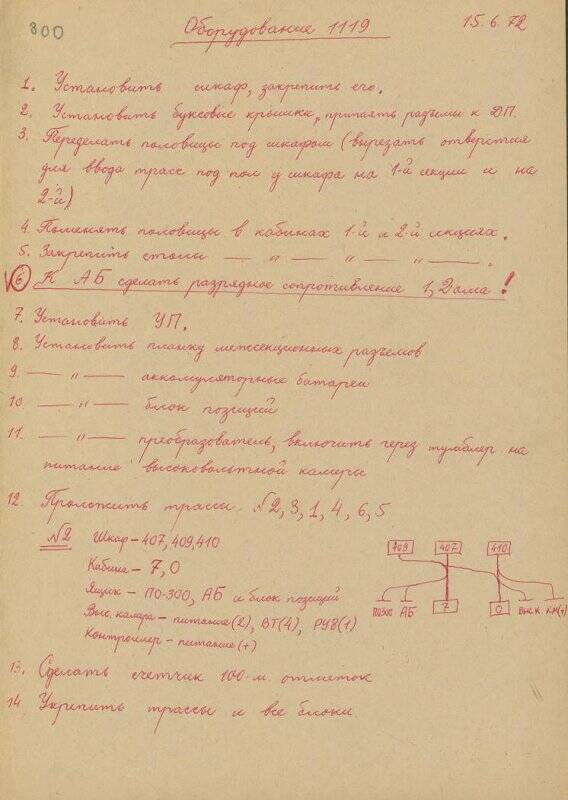 800
Оборудование 1119
15.6.72
1. Установить шкаф, закрепить его.
2. Установить буксовые крышки, припаять разъемы к ДП.
3. Переделать половицы под шкафом (вырезать отверстия
для ввода трасс под пол у шкафа на 1-й секции и на
2-й)
4. Поменять половицы в кабинах 1-й и 2-й секциях.
5. Закрепить столы — " — " — " — " — .
6 К АБ сделать разрядное сопротивление 1, 2 ома!
7. Установить УП.
8. Установить планку межсекционных разъемов
9. — " — аккомуляторных батареи
10 — " — блок позиций
11. — " — преобразователь, включить через тумблер на
питание высоковольтной камеры
12. Проложить трассы №2, 3, 1, 4, 6, 5
№2 Шкаф – 407, 409, 410
Кабина – 7, 0
Ящик – ПО-300, АБ и блок позиций
Выс. камера – питание(2), ВТ(4), РУВ(1)
Контроллер – питание (+)
409 407 410
ПО300 АБ 7 0 ВЫС.К КМ(+)
13. Сделать счетчик 100-м. отметок
14 Укрепить трассы и все блоки